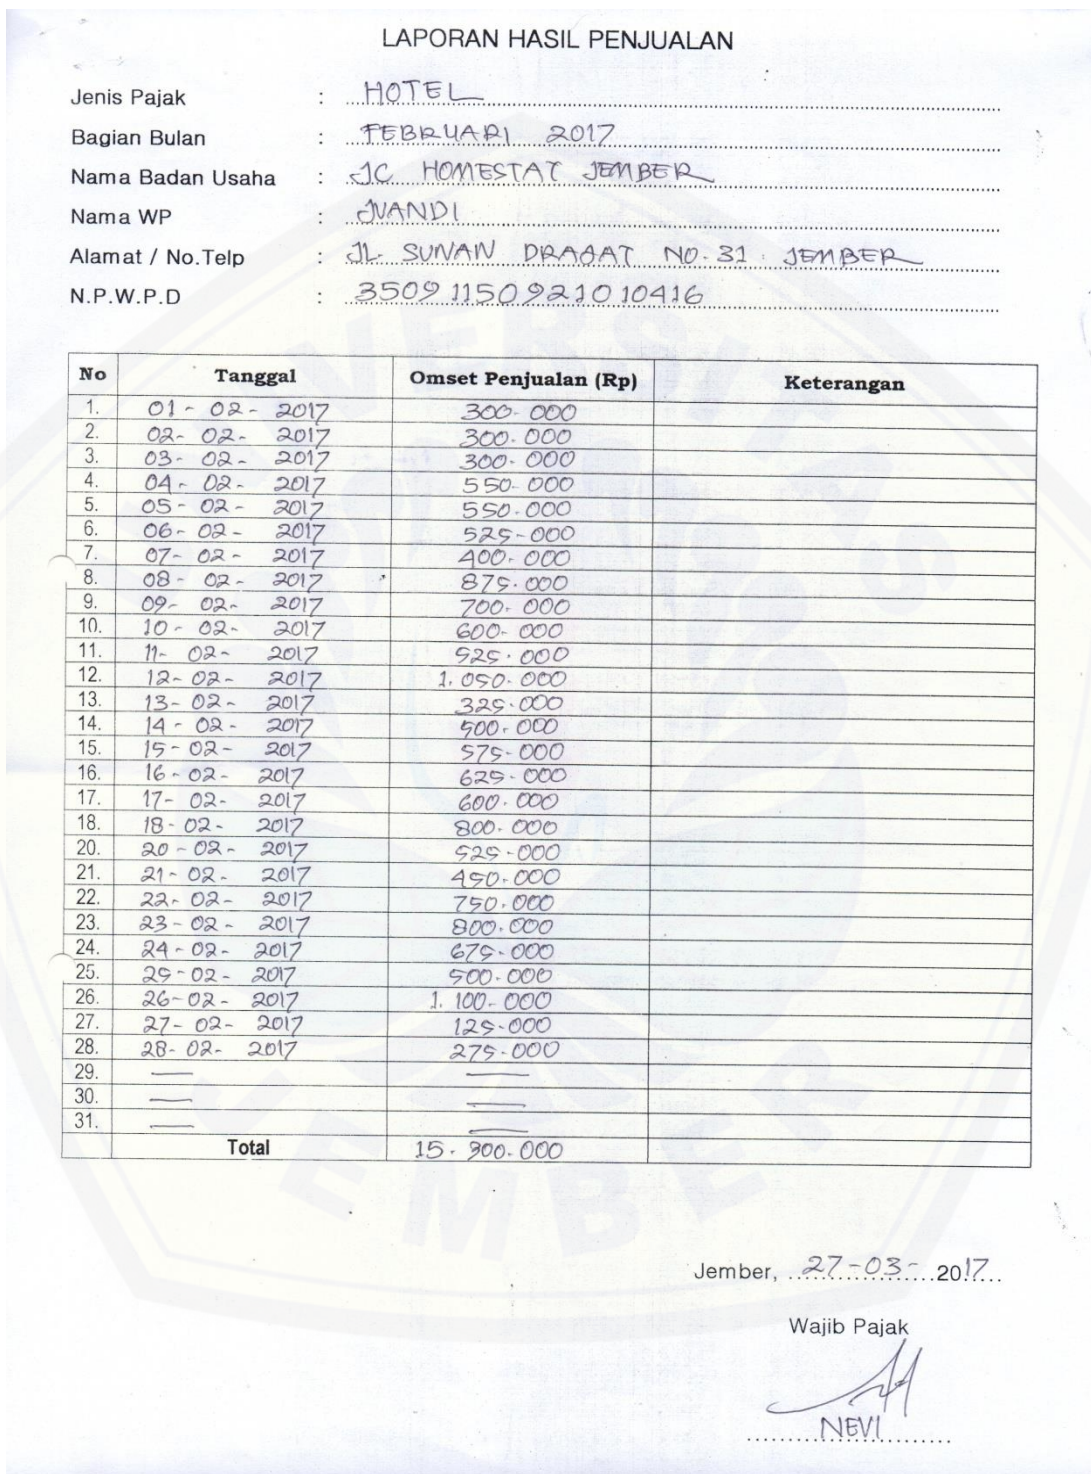 LAPORAN HASIL PENJUALAN
Jenis Pajak : HOTEL
Bagian Bulan : FEBRUARI 2017
Nama Badan Usaha : JC HOMESTAY JEMBER
Nama WP : JUANDI
Alamat / No.Telp : JL. SUNAN DRAJAT NO. 31 JEMBER
N.P.W.P.D : 3509 1150 921010416
No Tanggal Omset Penjualan (Rp) Keterangan
1. 01 - 02 - 2017 300.000
2. 02 - 02 - 2017 300.000
3. 03 - 02 - 2017 300.000
4. 04 - 02 - 2017 550.000
5. 05 - 02 - 2017 550.000
6. 06 - 02 - 2017 525.000
7. 07 - 02 - 2017 400.000
8. 08 - 02 - 2017 875.000
9. 09 - 02 - 2017 700.000
10. 10 - 02 - 2017 600.000
11. 11 - 02 - 2017 525.000
12. 12 - 02 - 2017 1.050.000
13. 13 - 02 - 2017 325.000
14. 14 - 02 - 2017 500.000
15. 15 - 02 - 2017 575.000
16. 16 - 02 - 2017 625.000
17. 17 - 02 - 2017 600.000
18. 18 - 02 - 2017 800.000
20. 20 - 02 - 2017 525.000
21. 21 - 02 - 2017 450.000
22. 22 - 02 - 2017 750.000
23. 23 - 02 - 2017 800.000
24. 24 - 02 - 2017 675.000
25. 25 - 02 - 2017 500.000
26. 26 - 02 - 2017 1.100.000
27. 27 - 02 - 2017 125.000
28. 28 - 02 - 2017 275.000
29. — —
30. — —
31. — —
Total 15.300.000
Jember, 27 - 03 - 2017
Wajib Pajak
NEVI
UNIVERSITAS JEMBER